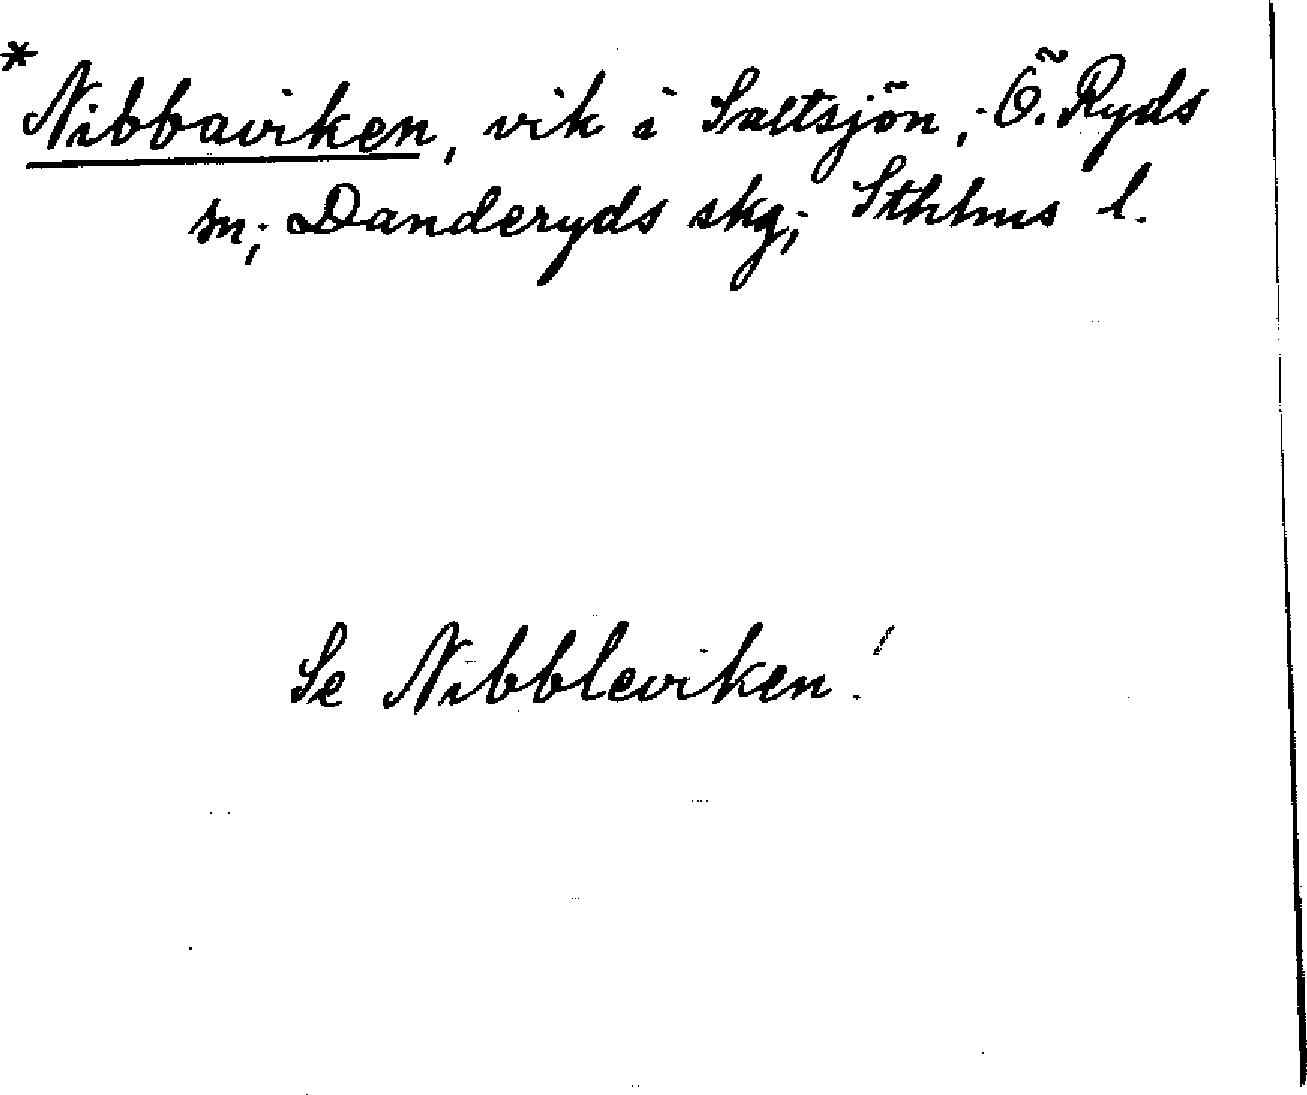 * Nibbaviken, vik i Saltsjön, Ö. Ryds
sn; Danderyds skg; Sthlms l.
Se Nibbleviken!